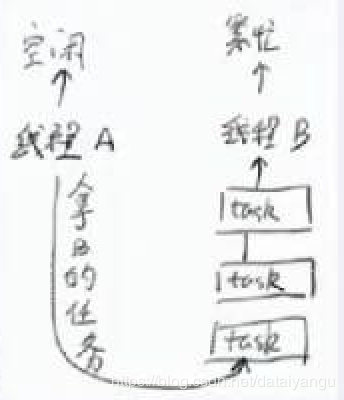 空闲
繁忙
线程 A
线程 B
拿B的任务
task
task
task
https://blog.csdn.net/dataiyangu